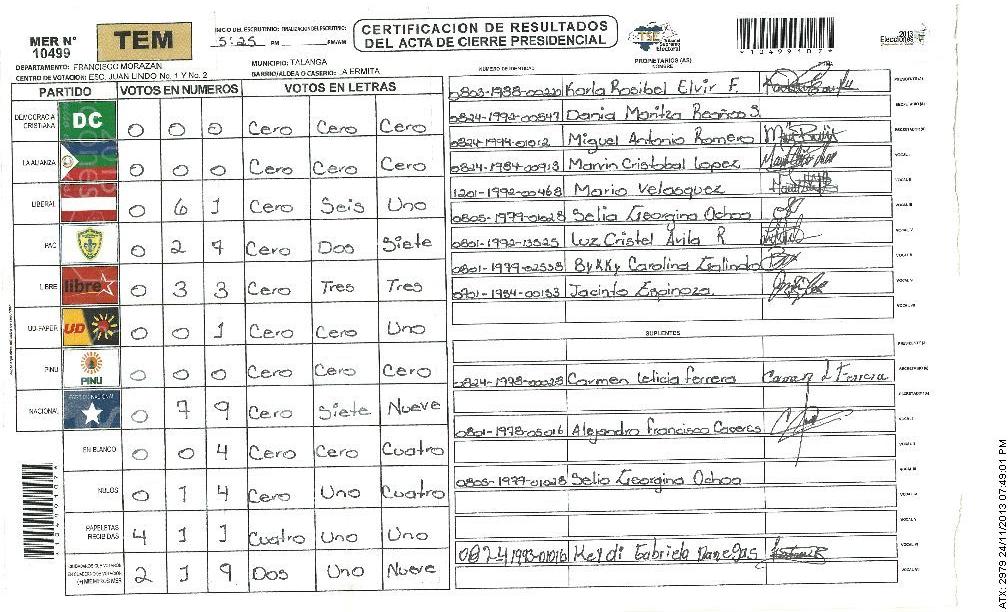 MER N° 10499
TEM
INICIO DEL ESCRUTINIO: FINALIZACION DEL ESCRUTINIO:
5:25 PM PM/AM
CERTIFICACION DE RESULTADOS
DEL ACTA DE CIERRE PRESIDENCIAL
TSE Tribunal Supremo Electoral
1049907
2013 Elecciones
DEPARTAMENTO: FRANCISCO MORAZAN
MUNICIPIO: TALANGA
CENTRO DE VOTACION: ESC. JUAN LINDO No. 1 Y No. 2
BARRIO/ALDEA O CASERIO: LA ERMITA
PARTIDO VOTOS EN NUMEROS VOTOS EN LETRAS
DEMOCRACIA CRISTIANA DC 0 0 0 Cero Cero Cero
LA ALIANZA 0 0 0 Cero Cero Cero
LIBERAL 0 6 1 Cero Seis Uno
PAC 0 2 7 Cero Dos Siete
LIBRE libre 0 3 3 Cero Tres Tres
UD-FAPER UD 0 0 1 Cero Cero Uno
PINU PINU 0 0 0 Cero Cero Cero
NACIONAL PARTIDO NACIONAL 0 7 9 Cero Siete Nueve
EN BLANCO 0 0 4 Cero Cero Cuatro
NULOS 0 1 4 Cero Uno Cuatro
PAPELETAS RECIBIDAS 4 1 1 Cuatro Uno Uno
2 1 9 Dos Uno Nueve
NUMERO DE IDENTIDAD PROPIETARIOS (AS) NOMBRE
0803-1988-00220 Karla Rosibel Elvir F.
0824-1992-00547 Dania Maritza
0824-1994-01012 Miguel Antonio Romero
0824-1984-00913 Marvin Cristobal Lopez
1201-1992-00468 Mario Velasquez
0805-1977-01028 Selia Georgina Ochoa
0801-1992-13525 Luz Cristel Avila R
0801-1977-02558 Carolina Galindo
0701-1984-00153 Jacinto Espinoza.
SUPLENTES
0824-1998-00028 Carmen Leticia Ferrera Carmen L Ferrera
0801-1978-05016 Alejandro Francisco Caceres
0805-1977-01028 Selia Georgina Ochoa
0824 1993-01016 Keydi Gabriela Banegas
ATX: 2979 24/11/2013 07:49:01 PM